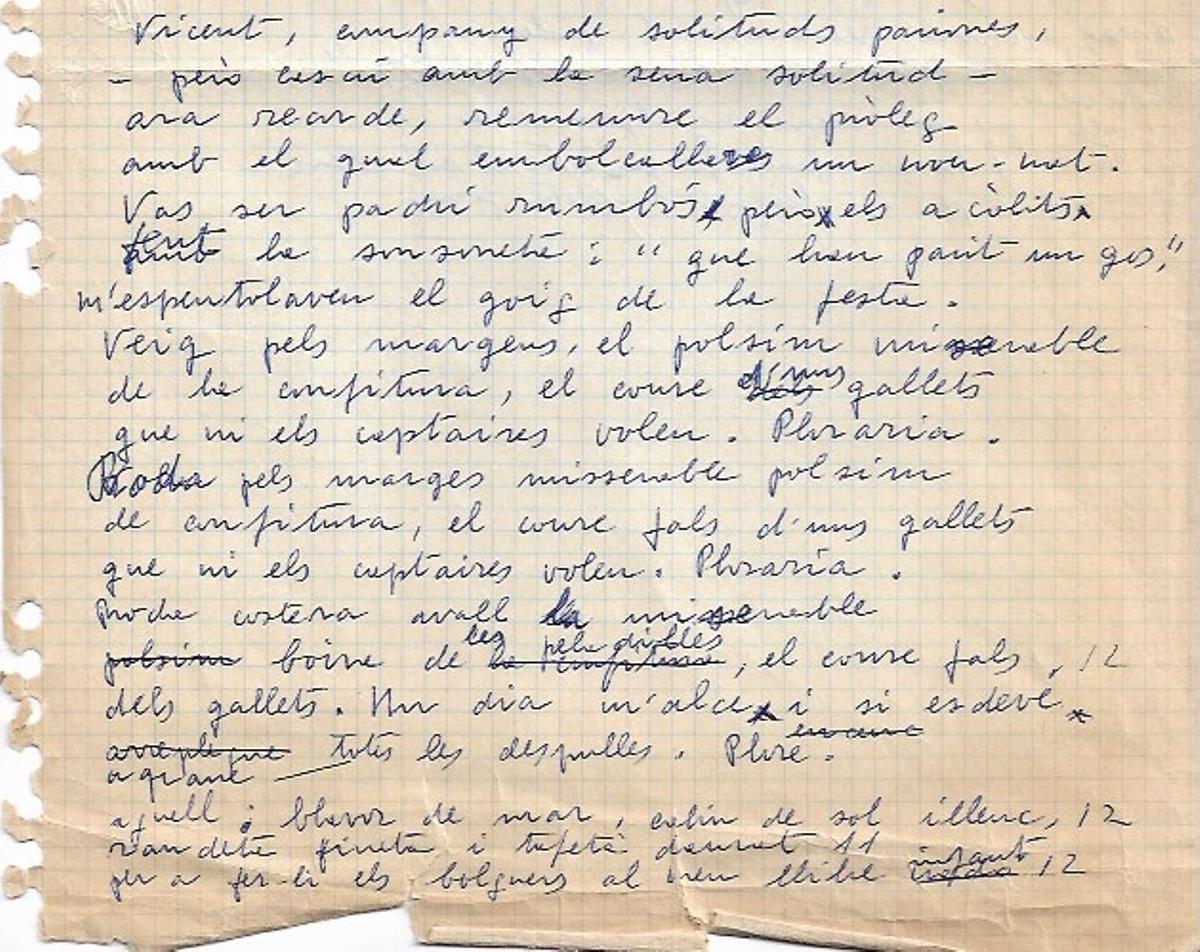 Vicent, company de solituds paiines,
- però cascú amb la seua solitud -
ara recorde, rememore el pròleg
amb el qual embolcallares un nou-nat.
Vas ser padrí rumbós, però els acòlits
fent
amb la sonsoneta: "que hau parit un gos,"
m'espentolaven el goig de la festa.
Veig pels margens, el polsim miserable
d'uns
de la confitura, el coure dels gallets
que ni els captaires volen. Ploraria.
Roda pels marges misserable polsim
de confitura, el coure fals d'uns gallets
que ni els captaires volen. Ploraria.
Roda costera avall la miserable
les peladilles
polsim boira de la confitura, el coure fals, 12
dels gallets. Un dia m'alce, i si esdevé,
arreplegue totes les despulles. Plore.
agrane
aquell: blavor de mar, calin de sol illenc, 12
randeta fineta i tafetà daurat 11
infant
per a fer-li els bolquers al meu llibre 12